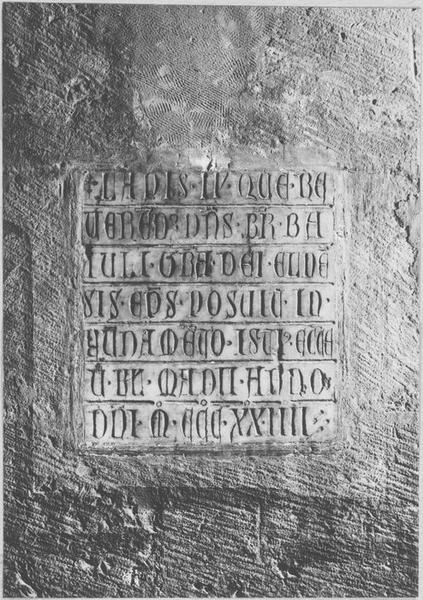 LAPIS · IP · QUE · RE
VEREND DNS · BR · BA
IULI · GRA · DEI · ELNE
SIS · EPS · POSUIT · IN ·
FUNDAMETO · ISTI · ECCE
V · KL · MADII · ANNO
DNI · M · CCC · XX · IIII